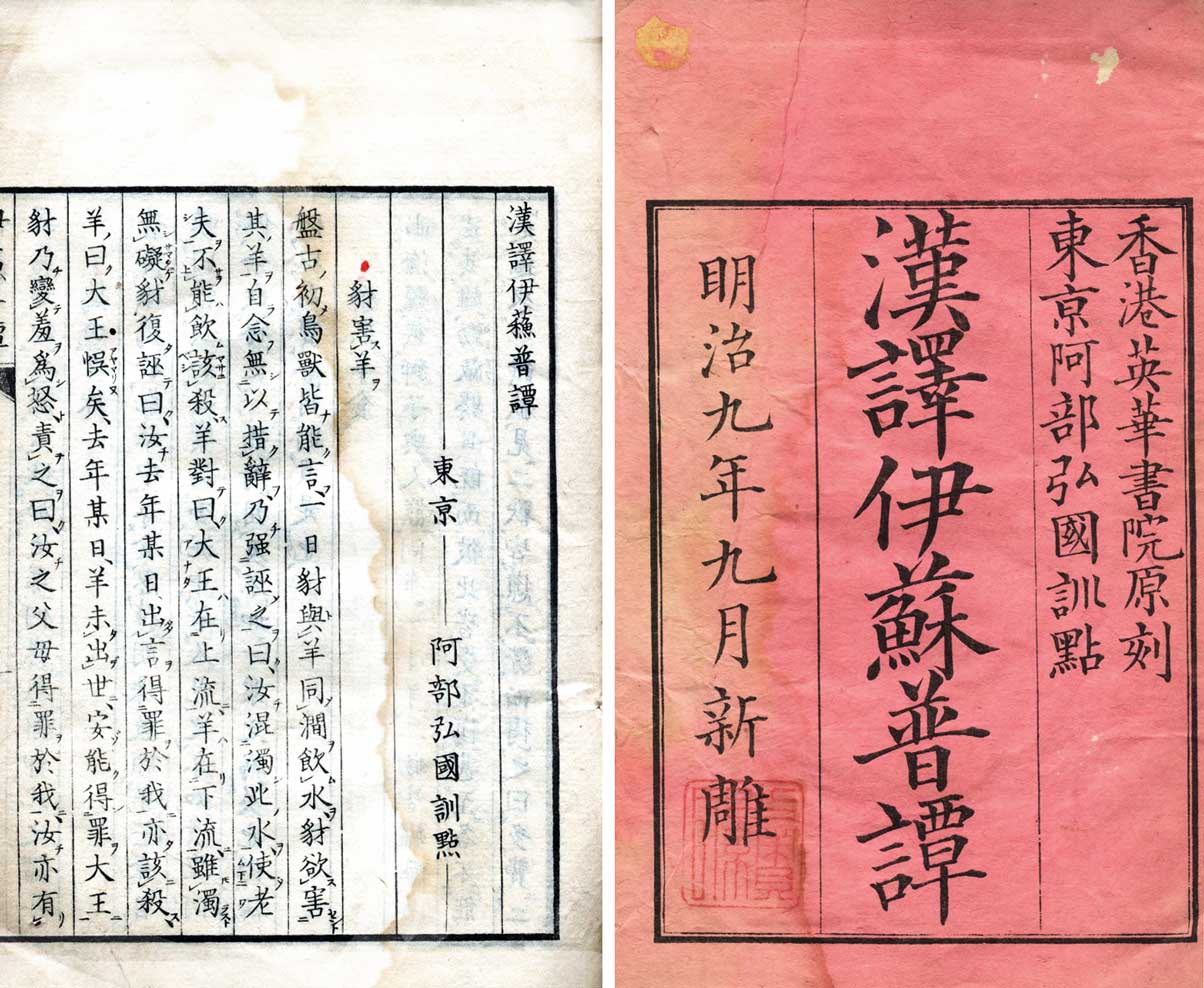 香港英華書院原刻
東京阿部弘國訓點
漢譯伊蘇普譚
明治九年九月新雕
漢譯伊蘓普譚
東京 阿部弘國訓點
豺害羊
盤古初鳥獸皆能言、一日豺與羊同澗飲水豺欲害
其羊自念無以措辭乃强誣之曰、汝混濁此水使老
夫不能飲該殺羊對曰、大王在上流、羊在下流、雖濁
無礙豺復誣曰、汝去年某日、出言得罪於我亦該殺、
羊曰、大王悞矣、去年某日、羊未出世、安能得罪大王
豺乃變羞爲怒、責之曰、汝之父母得罪於我、汝亦有